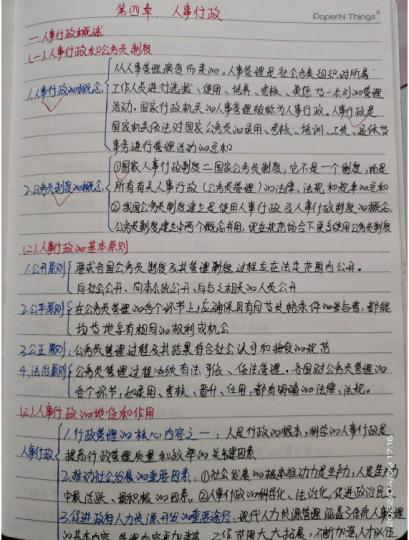 第四章 人事行政
DaperN Things
一、人事行政概述
(一)人事行政和公务员制度
从人事管理演变而来的。人事管理是社会各类组织对所属
1.人事行政的概念
工作人员进行选拔、使用、培养、考核、奖惩等一系列的管理
活动,国家行政机关的人事管理被称为人事行政。人事行政是
国家机关依法对国家公务员的录用、考核、培训、工资、退休等
事务进行管理活动的总和
①国家人事行政制度=国家公务员制度,它不是一个制度,而是
2.公务员制度的概念
所有有关人事行政(公务员管理)的法律、法规和规章的总和
②我国公务员制度建立是使用人事行政及人事行政制度的概念,
公务员制度建立中两个概念并用,现在规范场合下更多使用公务员制度
(二)人事行政的基本原则
1.公开原则
要求各国公务员制度及其管理制度过程在法定范围内公开。
向社会公开、向本系统公开、向与之相关的人员公开
2.公平原则
在公务员管理的各个环节上,应确保具有同等资格条件的参与者,都能
均等地享有相同的权利或机会
3.公正原则:公务员管理过程及其结果符合社会认可和接受的规范
4.法治原则
公务员管理过程必须有法可依、依法管理。各国对公务员管理的
各个环节,如录用、考核、晋升、任用,都有明确的法律、法规。
(三)人事行政的地位和作用
1.行政管理的核心内容之一:人是行政的根本,科学的人事行政是
人事行政
提高行政管理质量和效率的关键因素
2.推动社会发展的重要因素:①社会发展的根本推动力是生产力,人是生产力
中最活跃、最积极的因素。②人事行政的科学化、法治化,促进政治民主
3.促进政府人力资源开发的重要途径:现代人力资源管理涵盖了传统人事管理
的基本内容,管理内容更加丰富,工作范围大大拓展,不断加强人力以任